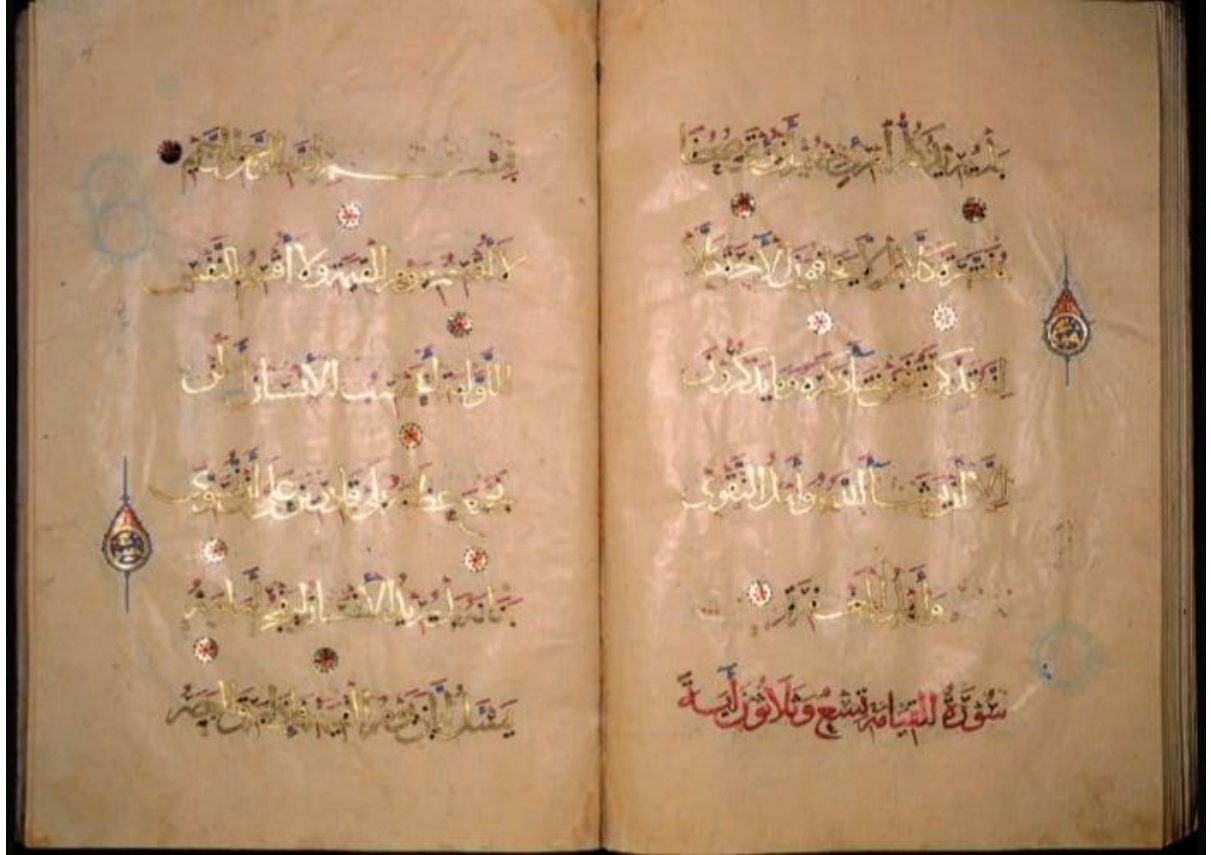 بَلْ يُرِيدُ كُلُّ امْرِئٍ مِنْهُمْ أَنْ يُؤْتَى صُحُفًا
مُنَشَّرَةً كَلَّا بَلْ لَا يَخَافُونَ الْآخِرَةَ كَلَّا
إِنَّهُ تَذْكِرَةٌ فَمَنْ شَاءَ ذَكَرَهُ وَمَا يَذْكُرُونَ
إِلَّا أَنْ يَشَاءَ اللَّهُ هُوَ أَهْلُ التَّقْوَى
وَأَهْلُ الْمَغْفِرَةِ
سُورَةُ الْقِيَامَةِ تِسْعٌ وَثَلَاثُونَ آيَةً
بِسْمِ اللَّهِ الرَّحْمَنِ الرَّحِيمِ
لَا أُقْسِمُ بِيَوْمِ الْقِيَمَةِ وَلَا أُقْسِمُ بِالنَّفْسِ
اللَّوَّامَةِ أَيَحْسَبُ الْإِنْسَانُ أَلَّنْ
نَجْمَعَ عِظَامَهُ بَلَى قَادِرِينَ عَلَى أَنْ نُسَوِّيَ
بَنَانَهُ بَلْ يُرِيدُ الْإِنْسَانُ لِيَفْجُرَ أَمَامَهُ
يَسْئَلُ أَيَّانَ يَوْمُ الْقِيَمَةِ فَإِذَا بَرِقَ الْبَصَرُ